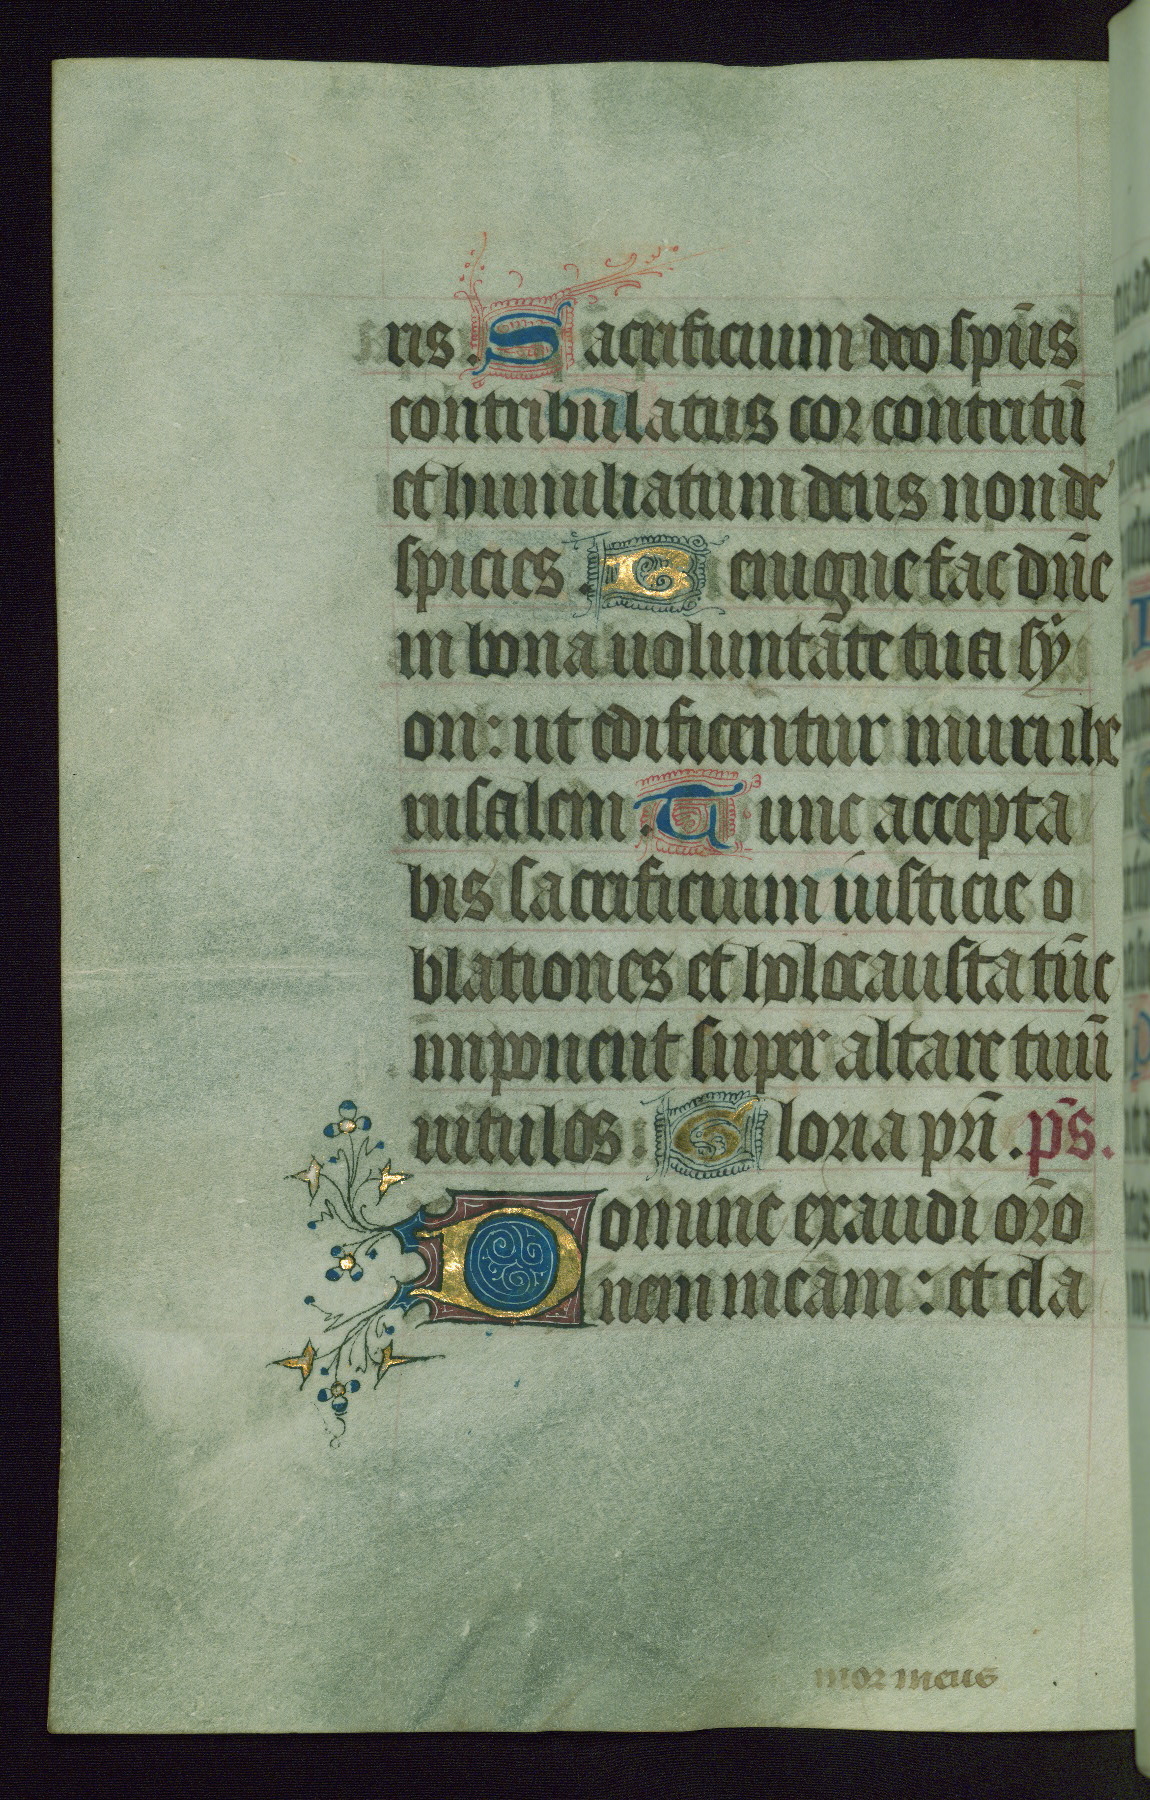 ris. Sacrificium deo sp̄us
contribulatus cor contritū
et humiliatum deus non de
spicies. Benigne fac dn̄e
in bona uolūntāte tua sy
on: ut edificentur muri ihe
rusalem. Tunc accepta
bis sacrificium iusticie o
blationes et holocausta tūc
imponent super altare tuū
uitulos. Gloria pr̄i. ps̄.
Domine exaudi or̄o
nem meam: et cla
mor meus